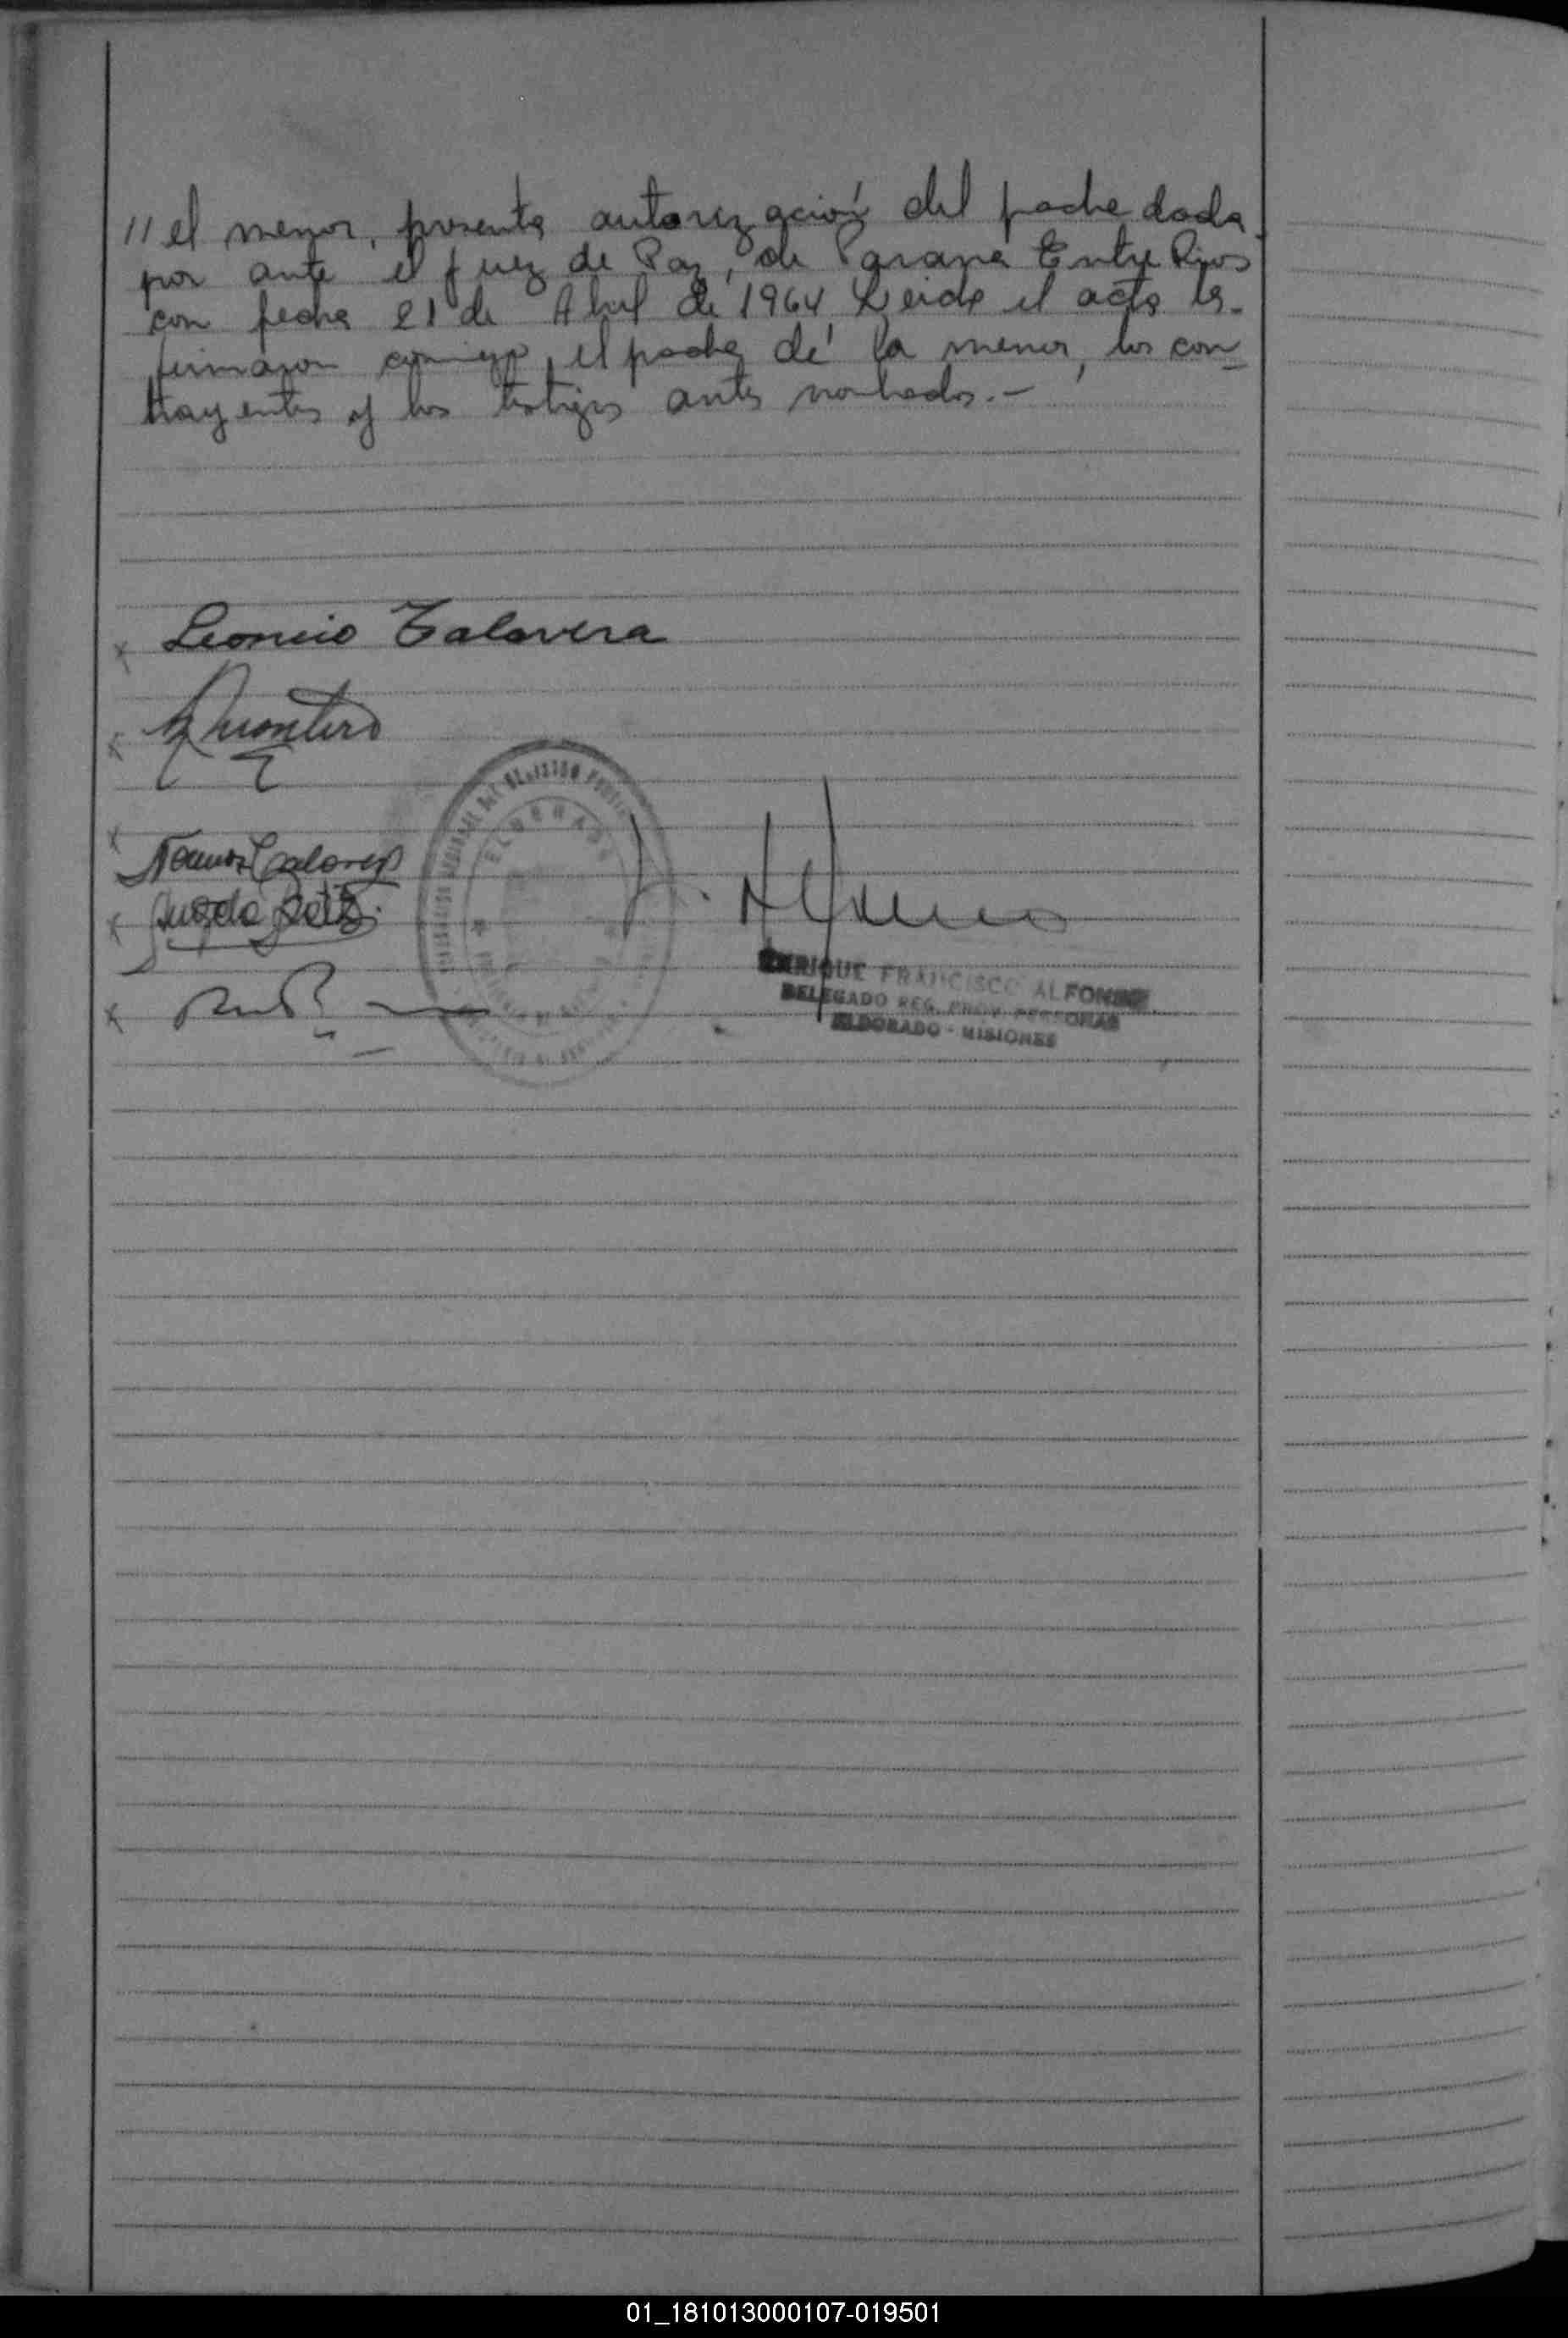 // el menor, presenta autorización del padre dada
por ante el Juez de Paz, de Parana Entre Rios
con fecha 21 de Abril de 1964 Leida el acta la
firmaron conmigo, el padre de la menor, los con
trayentes y los testigos antes nombrados.-
x Leoncio Talavera
x Quintero
x Talavera
ELDORADO
x
x
ENRIQUE FRANCISCO ALFONSO
DELEGADO REG. PROV. PERSONAS
ELDORADO - MISIONES
01_181013000107-019501